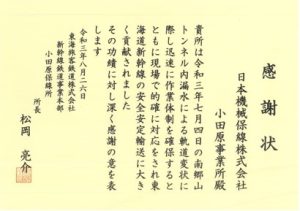 感謝状
日本機械保線株式会社
小田原事業所殿
貴所は令和三年七月四日の南郷山
トンネル内漏水による軌道変状に
際し迅速に作業体制を確保すると
ともに現場で的確に対応をされ東
海道新幹線の安全安定輸送に大き
く貢献されました
その功績に対し深く感謝の意を表
します
令和三年八月二六日
東海旅客鉄道株式会社
新幹線鉄道事業本部
小田原保線所
所長 松岡 亮介